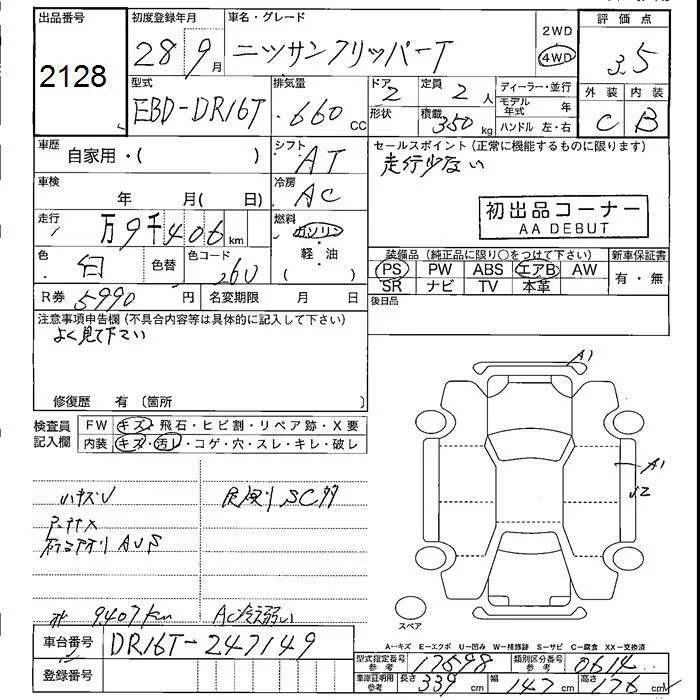 出品番号
2128
初度登録年月
28 9月
車名・グレード
ニッサンクリッパーT
2WD
4WD
評価点
3.5
型式
EBD-DR16T
排気量
660 cc
ドア
2
形状
定員
2人
積載
350 kg
ディーラー・並行
モデル年式 年
ハンドル 左・右
外装
C
内装
B
車歴
自家用・( )
シフト
AT
セールスポイント (正常に機能するものに限ります)
走行少ない
車検
年 月( 日)
冷房
AC
初出品コーナー
AA DEBUT
走行
万9千406 km
燃料
ガソリン
軽・油
( )
色
白
色替
色コード
26U
装備品 (純正品に限り○をつけて下さい)
PS PW ABS エアB AW
SR ナビ TV 本革
新車保証書
有・無
R券 5990 円
名変期限 月 日
後日品
注意事項申告欄 (不具合内容等は具体的に記入して下さい)
よく見て下さい
修復歴 有 (箇所
検査員記入欄
FW キズ・飛石・ヒビ割・リペア跡・X要
内装 キズ・汚レ・コゲ・穴・スレ・キレ・破レ
A1
A1
U2
小キズU
SC
AUS
9407km
AC冷え弱い
スペア
A…キズ E…エクボ U…凹み W…補修跡 S…サビ C…腐食 XX…交換済
車台番号
DR16T-247149
登録番号
型式指定番号 参考
17598
類別区分番号 参考
0614
車庫証明用 参考
長さ 339 cm 幅 147 cm 高さ 176 cm